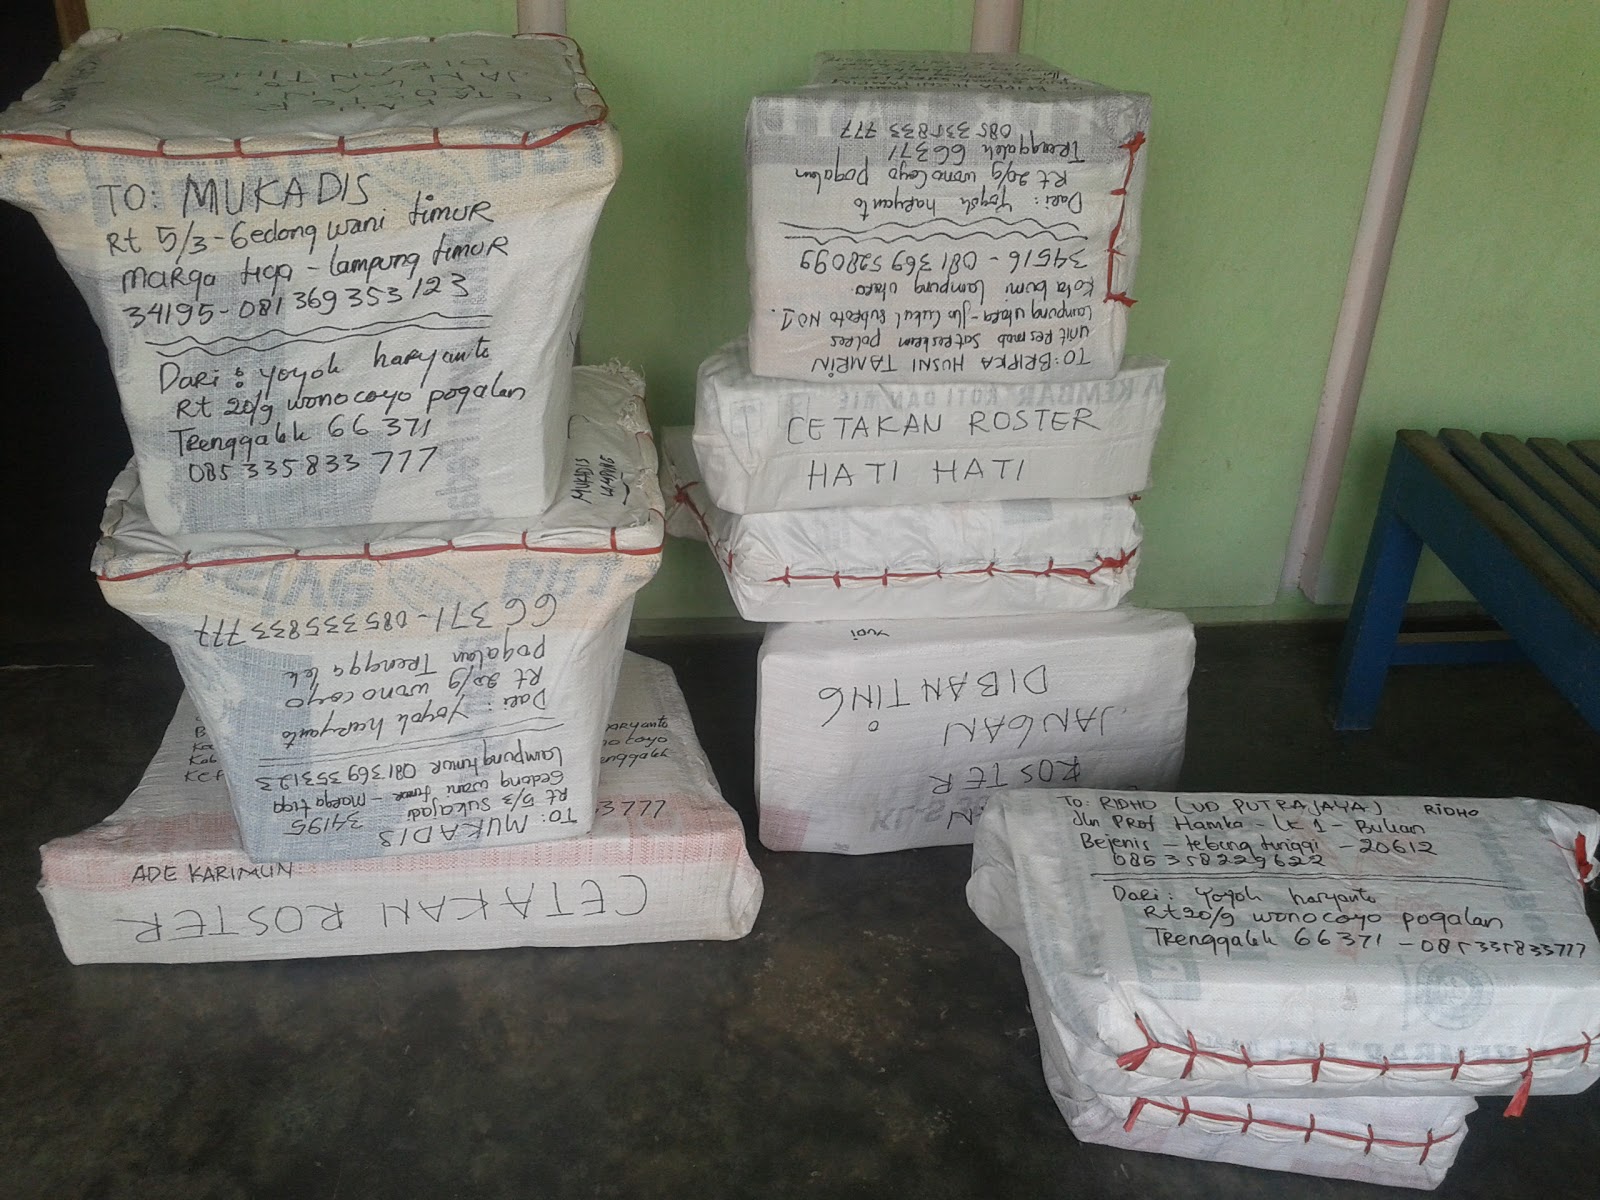 CETAKAN
ROSTER
JANGAN
DIBANTING
TO: MUKADIS
Rt 5/3 - Gedong wani timur
marga tiga - lampung timur
34195 - 081 369 353 123
Dari : yoyok haryanto
Rt 20/9 wonocoyo pogalan
Trenggalek 66 371
085 335 833 777
MUKADIS
LAMPUNG
TO: MUKADIS
Rt 5/3 Sukajadi 34195
Gedong wani timur - Marga tiga
Lampung timur 081 369 353123
Dari : Yoyok haryanto
Rt 20/9 wonocoyo
pogalan Trenggalek
66 371 - 085335833777
ARYANTO
3777
ADE KARIMUN
CETAKAN ROSTER
TO: BRIPKA HUSNI TAMRIN
unit Resmob Satreskrim polres
Lampung utara - Jln Tukul Subroto NO 1.
Kota bumi Lampung utara
34516 - 081 369 528099
Dari : Yoyok haryanto
Rt 20/9 wonocoyo pogalan
Trenggalek 66371
085 335833 777
KEMBAR ROTI DAN MIE
CETAKAN ROSTER
HATI HATI
ROSTER
JANGAN
DIBANTING
YUDI
TO: RIDHO (UD PUTRA JAYA) RIDHO
Jln Prof Hamka - LK 1 - Bulian
Bejenis - tebing tinggi - 20612
085358229622
Dari : Yoyok haryanto
Rt 20/9 wonocoyo pogalan
Trenggalek 66371 - 085335833777